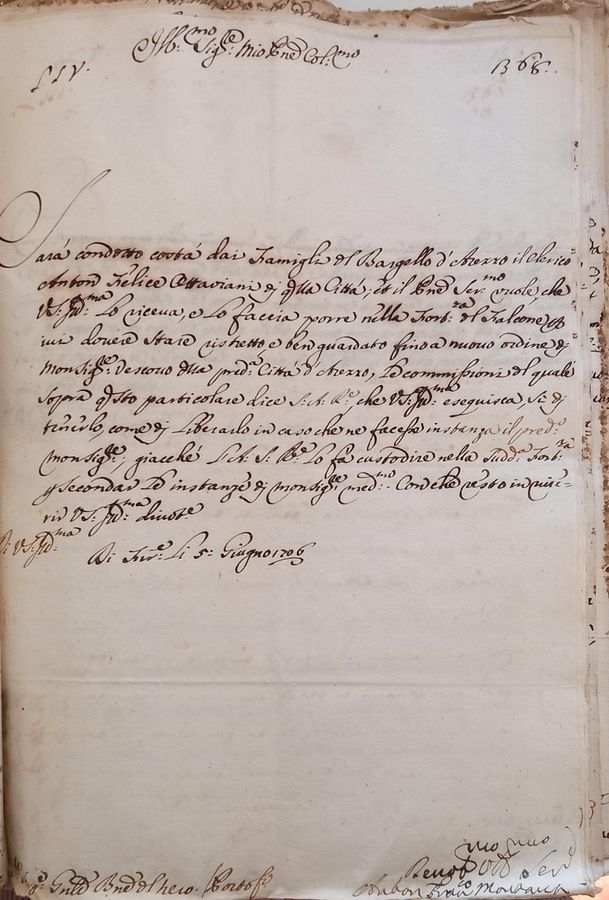 Ill:mo Sig:re Mio Pne Col:mo
LIV.
1368.
Sarà condotto costà dai Famigli del Bargello d'Arezzo il Clerico
Anton Felice Ottaviani di q.lla Città, et il Pne Ser:mo vuole, che
V:S: Ill:ma Lo riceva, e Lo faccia porre nella Fort:za del Falcone, p
ivi dovere stare ristretto e ben guardato fino a nuovo ordine di
Monsig:re Vescovo d.lla pred:a Città d'Arezzo, Le commissioni del quale
sopra q.sto particolare dice S:A:R:e, che V:S: Ill:ma eseguisca sì di
tenerlo, come di Liberarlo in caso che ne facesse instanza il pred:o
Monsig:re, giacchè L'A: S: R:e Lo fa custodire nella Sudd:a Fort:za
p secondar Le instanze di Monsig:re med:mo Con che resto in rive-
rir V:S: Ill:ma divot:e
Di V:S: Ill:ma
Di Fir:e Li 5: Giugno 1706
Portof:o